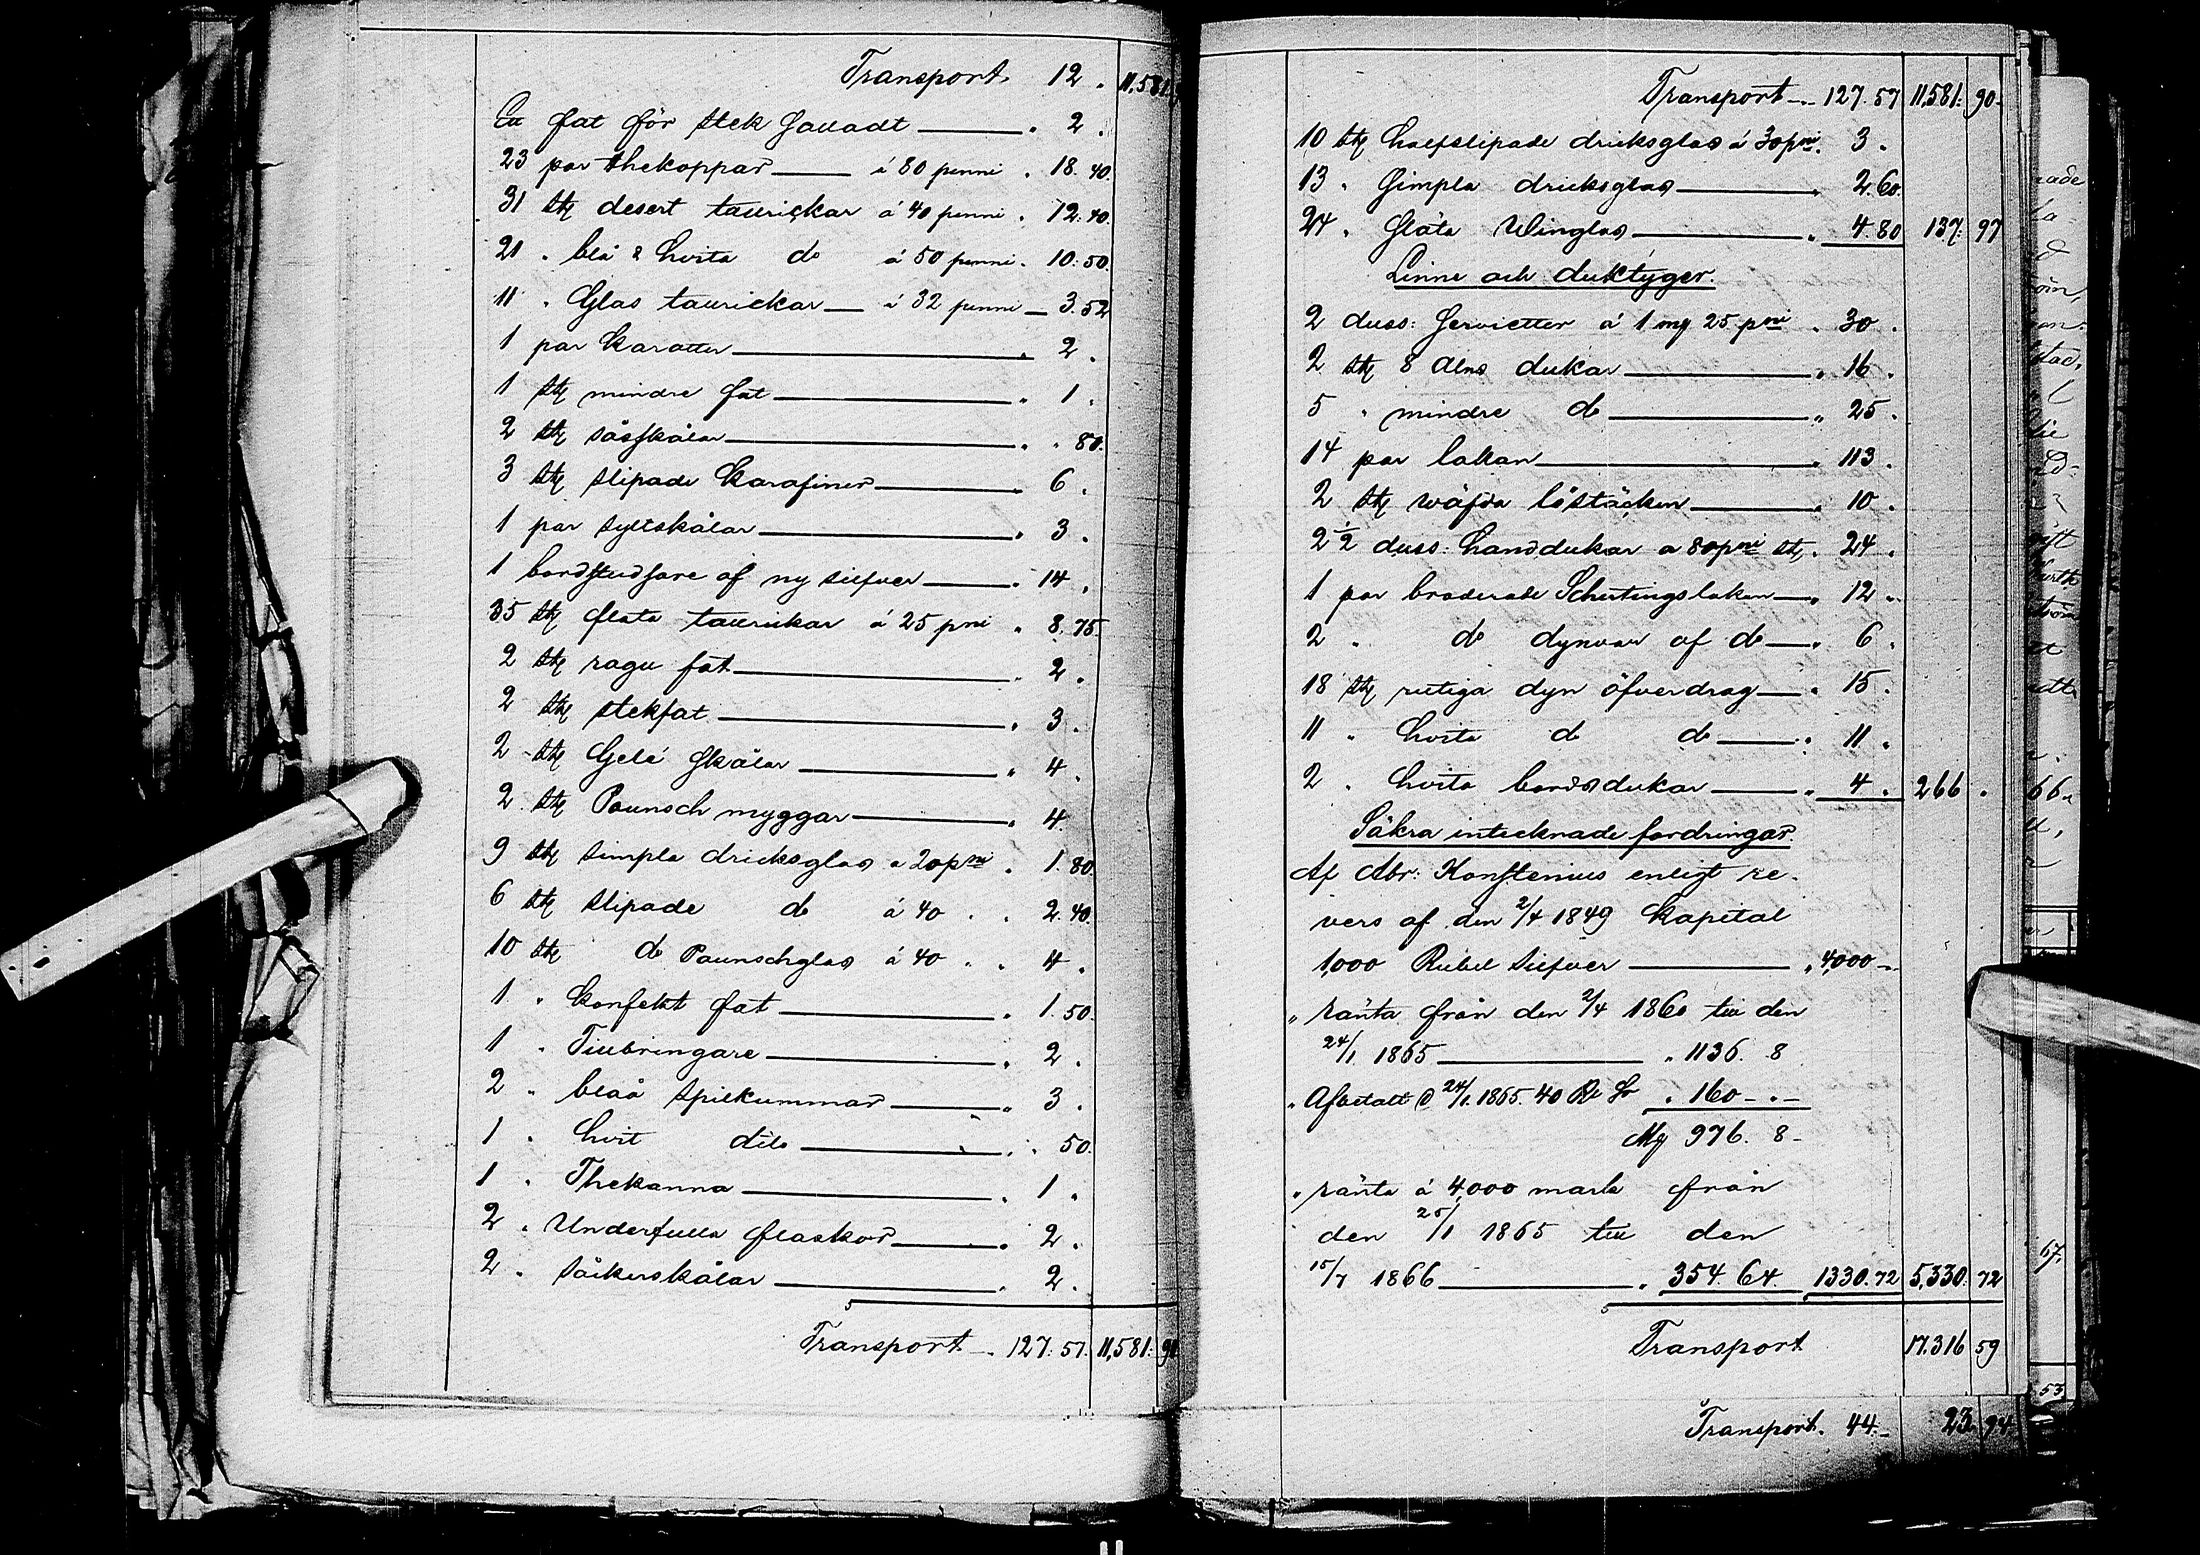 Transport. 12 . 11,581.
Ett fat för stek savadt — . 2 .
23 par thekoppar — á 80 penni . 18. 40.
31 stq desert taurickar á 40 penni . 12. 40.
21 . blå & hvita do á 50 penni . 10. 50.
11 . Glas taurickar — á 32 penni — 3. 52
1 par karotter — . 2 .
1 stq mindre fat — . 1 .
2 stq såsskålar — . . 80.
3 stq slipade karafiner — 6 .
1 par syltskålar — . 3 .
1 bordstudsare af ny silfver — . 14 .
35 stq flata taurickar á 25 pni . 8. 75.
2 stq ragu fat — . 2 .
2 stq stekfat — . 3 .
2 stq Gelé skålar — . 4 .
2 stq Paunsch muggar — . 4.
9 stq simpla dricksglas a 20 pni . 1. 80.
6 stq slipade do á 40 . . 2. 40.
10 stq do Paunschglas á 40 . . 4 .
1 . konfekt fat — . 1. 50.
1 . Tillbringare — . 2 .
2 . blåa spilkummar — . 3 .
1 . hvit dito — . . 50.
1 . Thekanna — . 1 .
2 . Underfulla flaskor — . 2 .
2 . såckerskålar — . 2 .
Transport — . 127. 57. 11,581: 90
Transport — . 127. 57 11,581: 90.
10 stq halfslipade dricksglas á 30 pni. 3 .
13 . simpla dricksglas — . 2. 60.
24 . släta Winglas — . 4. 80 137. 97
Linne och duktyger.
2 duss: servietter á 1 mq 25 pni . 30 .
2 stq 8 alns dukar — . 16 .
5 . mindre do — . 25 .
14 par lakan — . 113 .
2 stq wäfda löstäcken — . 10 .
2½ duss: handdukar a 80 pni stq . 24 .
1 par broderade Schirtingslakan — . 12 .
2 . do dynvar af do — . 6 .
18 stq rutiga dyn öfverdrag — . 15 .
11 . hvita do do — . 11 .
2 . hvita bordsdukar — . 4 . 266 .
Säkra intecknade fordringar.
Af Abr: Konstenius enligt re-
vers af den 2/4 1849 kapital
1,000 Rubel silfver — . 4,000 —
. ränta från den 2/4 1860 till den
24/1 1865 — . 1136. 8
. Afbetalt d 24/1 1865. 40 Rb Sr . 160 — . —
Mq 976. 8 -
. ränta á 4,000 mark från
den 25/1 1865 till den
15/7 1866 — . 354. 64. 1330. 72 5,330. 72
Transport 17.316 59
Transport. 44. — 23. 94